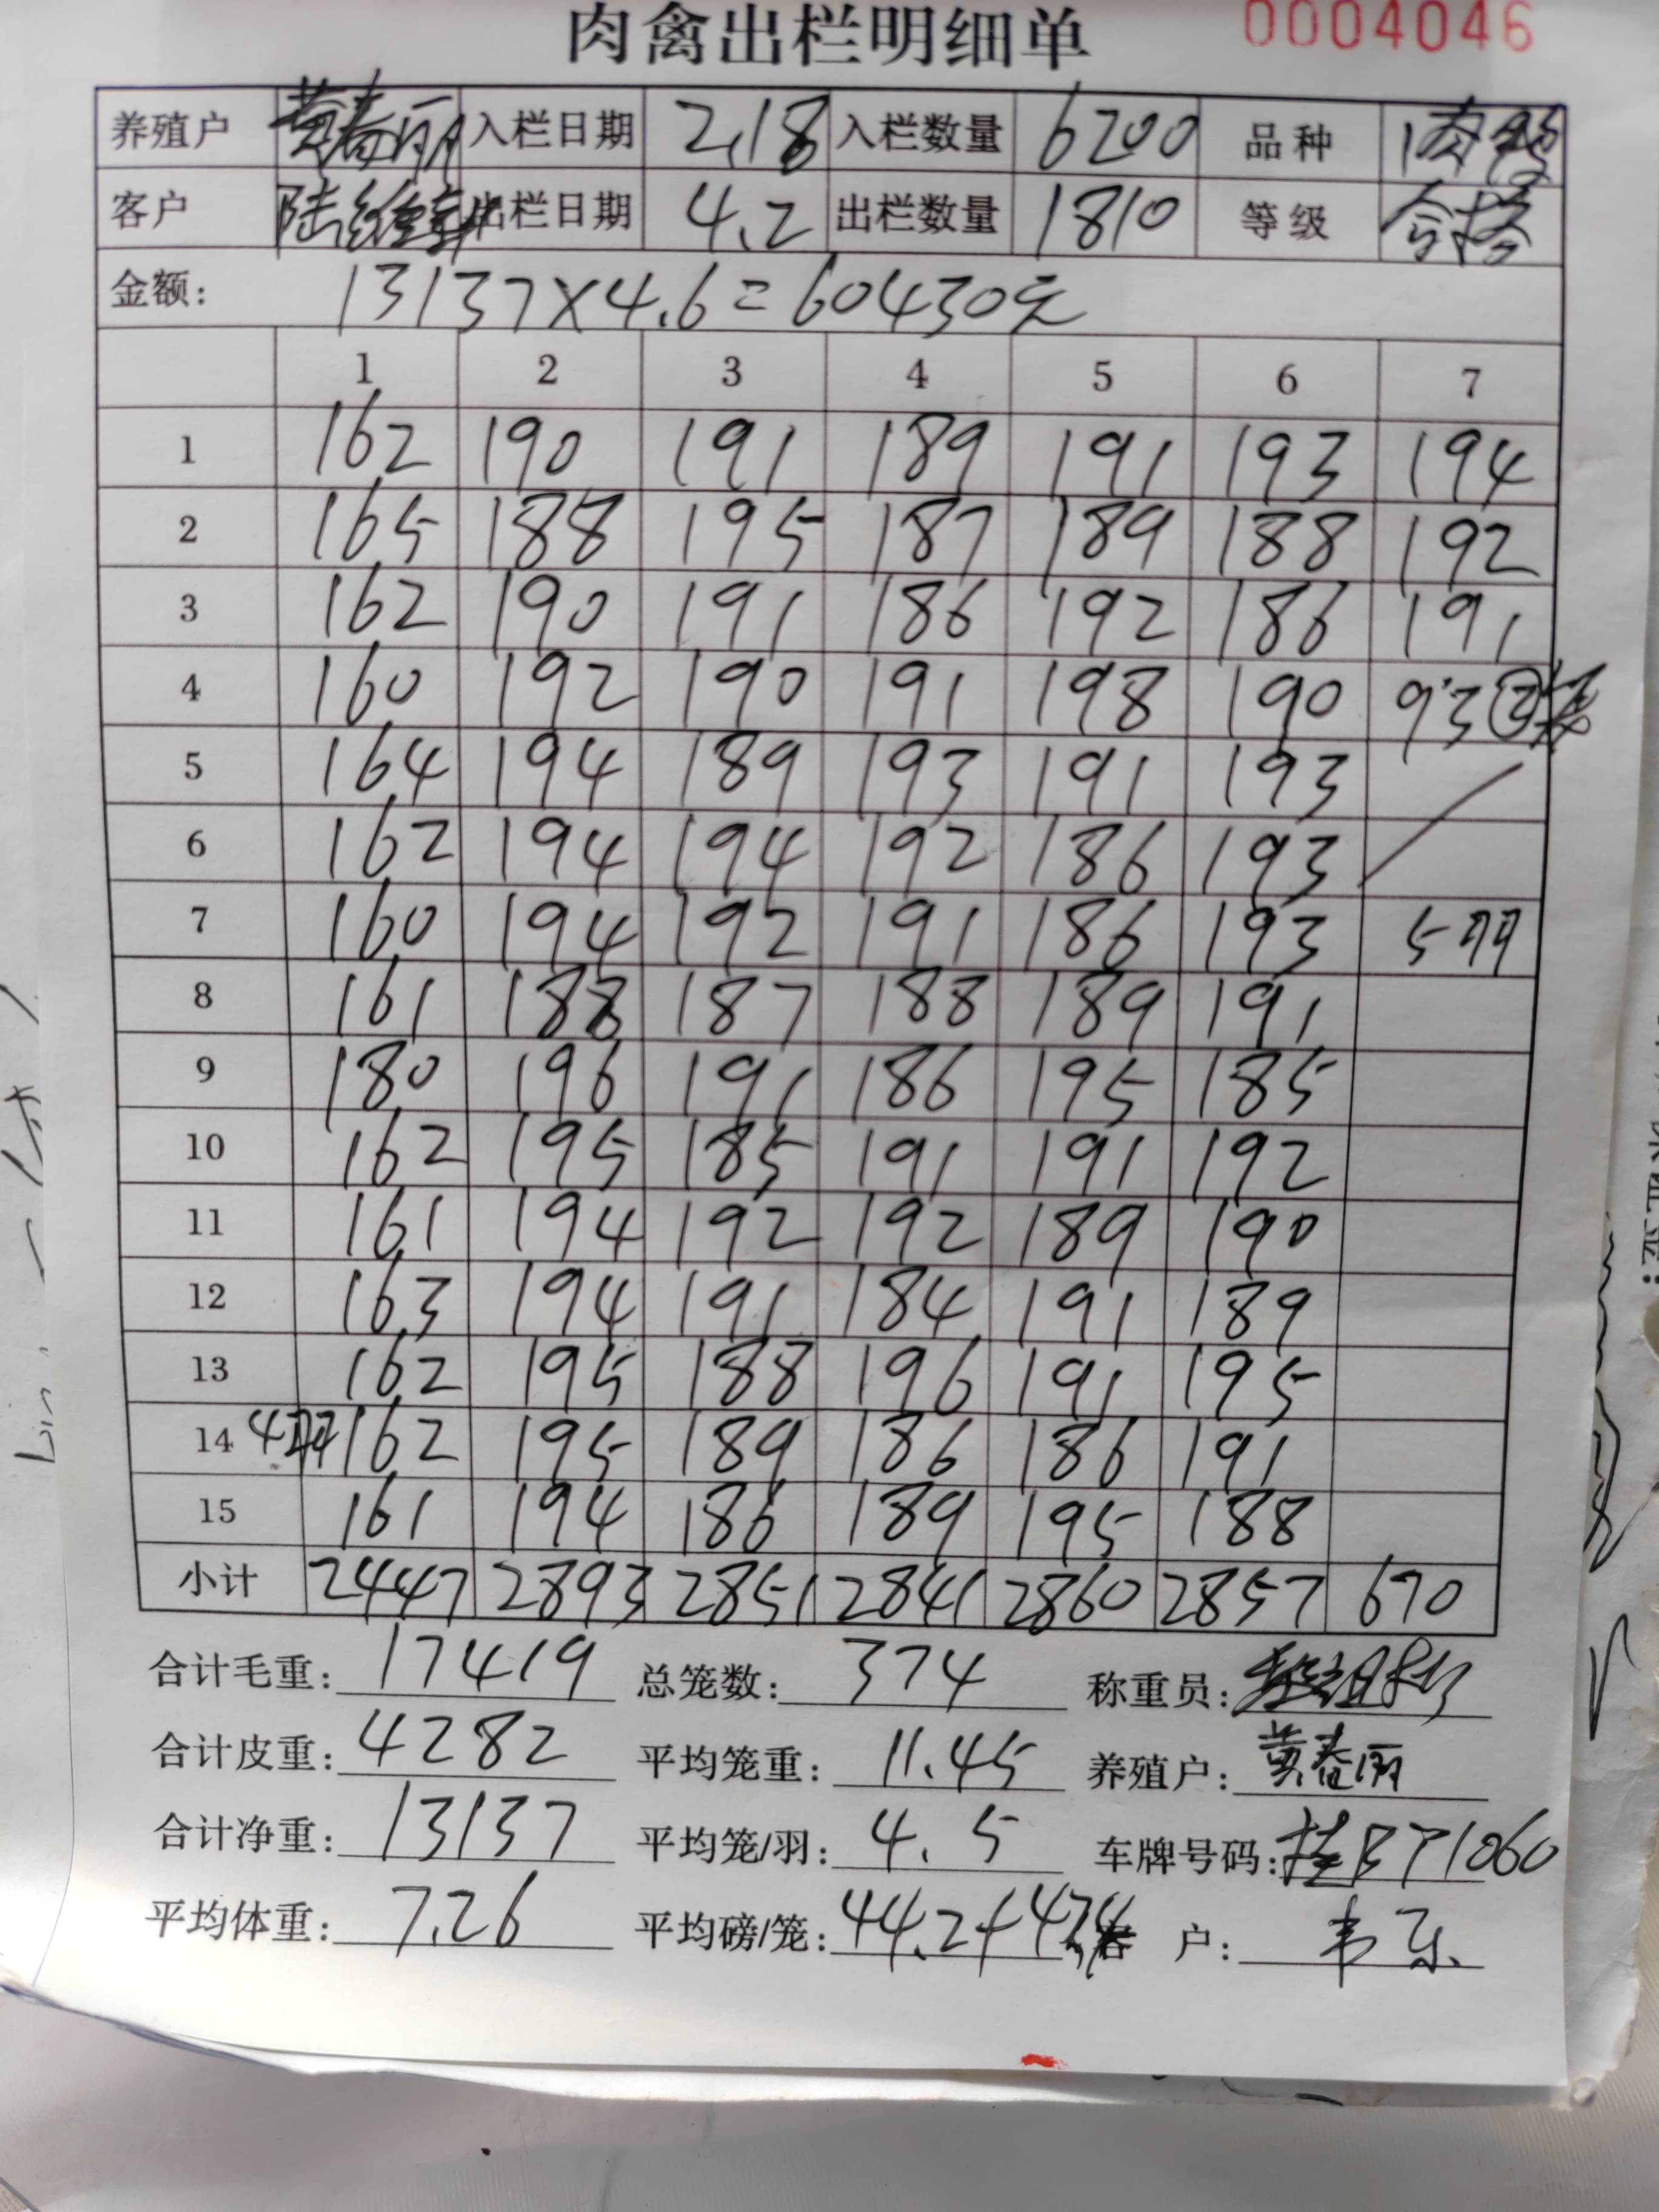 肉禽出栏明细单 0004046
养殖户 黄春丽 入栏日期 2.18 入栏数量 6200 品种 肉鸭
客户 陆维 出栏日期 4.2 出栏数量 1810 等级 合格
金额: 13137×4.6=60430元
1 2 3 4 5 6 7
1 162 190 191 189 191 193 194
2 165 188 195 187 189 188 192
3 162 190 191 186 192 186 191
4 160 192 190 191 198 190 93 ②
5 164 194 189 193 191 193
6 162 194 194 192 186 193
7 160 194 192 191 186 193 5羽
8 161 188 187 188 189 191
9 180 196 191 186 195 185
10 162 195 185 191 191 192
11 161 194 192 192 189 190
12 163 194 191 184 191 189
13 162 195 188 196 191 195
14 4羽 162 195 189 186 186 191
15 161 194 186 189 195 188
小计 2447 2893 2851 2841 2860 2857 670
合计毛重: 17419 总笼数: 374 称重员:
合计皮重: 4282 平均笼重: 11.45 养殖户: 黄春丽
合计净重: 13137 平均笼/羽: 4.5 车牌号码: 桂BT1060
平均体重: 7.26 平均磅/笼: 44.2+4 客 户: 韦乐